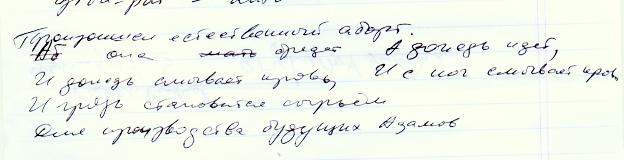 Произошел естественный аборт.
она бредет А дождь идет,
И дождь смывает кровь, И с ног смывает кровь
И грязь становится сырьём
Для производства будущих Адамов